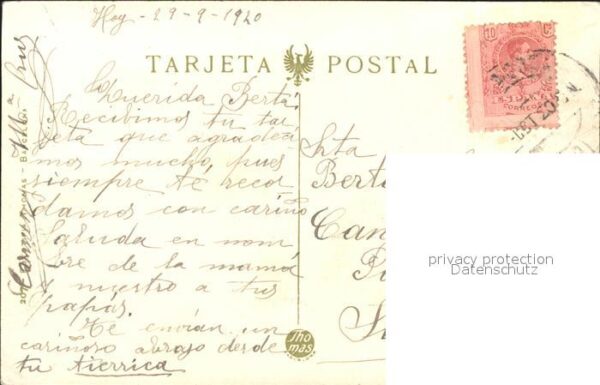 Hoy - 29-9-1920
TARJETA POSTAL
Querida Berta:
Recibimos tu tar
jeta que agradeci
mos mucho, pues
siempre te recor
damos con cariño
Saluda en nom
bre de la mamá
y nuestro a tus
papás.
Te envian un
cariñoso abrazo desde
tu tierrica
Carmen
Cruz
Srta
Berta
Can
THOMAS - BARCELONA
Tho
mas.
10
10
CORREOS
OCT 20
privacy protection
Datenschutz